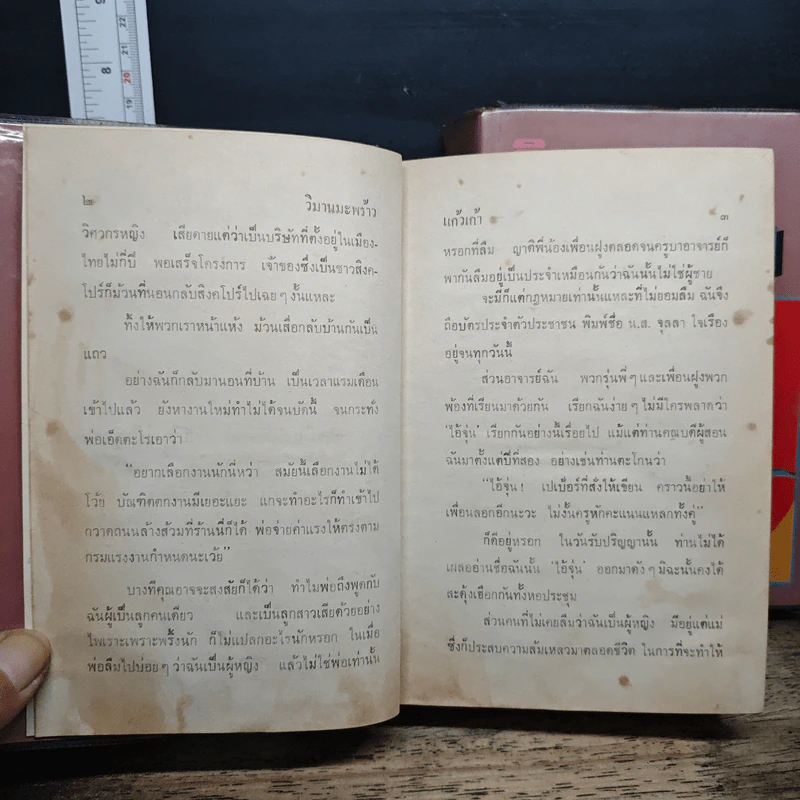 9
22
21
8
20
19
๒
วิมานมะพร้าว
วิศวกรหญิง เสียดายแต่ว่าเป็นบริษัทที่ตั้งอยู่ในเมือง-
ไทยไม่กี่ปี พอเสร็จโครงการ เจ้าของซึ่งเป็นชาวสิงค-
โปร์ก็ม้วนที่นอนกลับสิงคโปร์ไปเฉยๆ งั้นแหละ
ทิ้งให้พวกเราหน้าแห้ง ม้วนเสื่อกลับบ้านกันเป็น
แถว
อย่างฉันก็กลับมานอนที่บ้าน เป็นเวลาแรมเดือน
เข้าไปแล้ว ยังหางานใหม่ทำไม่ได้จนบัดนี้ จนกระทั่ง
พ่อเอ็ดตะโรเอาว่า
“อยากเลือกงานนักนี่หว่า สมัยนี้เลือกงานไม่ได้
โว้ย บัณฑิตตกงานมีเยอะแยะ แกจะทำอะไรก็ทำเข้าไป
กวาดถนนล้างส้วมที่ร้านนี่ก็ได้ พ่อจ่ายค่าแรงให้ตรงตาม
กรมแรงงานกำหนดนะเว้ย”
บางทีคุณอาจจะสงสัยก็ได้ว่า ทำไมพ่อถึงพูดกับ
ฉันผู้เป็นลูกคนเดียว และเป็นลูกสาวเสียด้วยอย่าง
ไพเราะเพราะพริ้งนัก ก็ไม่แปลกอะไรนักหรอก ในเมื่อ
พ่อลืมไปบ่อยๆ ว่าฉันเป็นผู้หญิง แล้วไม่ใช่พ่อเท่านั้น
แก้วเก้า
๓
หรอกที่ลืม ญาติพี่น้องเพื่อนฝูงตลอดจนครูบาอาจารย์ก็
พากันลืมอยู่เป็นประจำเหมือนกันว่าฉันนั้นไม่ใช่ผู้ชาย
จะมีก็แต่กฎหมายเท่านั้นแหละที่ไม่ยอมลืม ฉันจึง
ถือบัตรประจำตัวประชาชน พิมพ์ชื่อ น.ส. จุลลา ใจเรือง
อยู่จนทุกวันนี้
ส่วนอาจารย์ฉัน พวกรุ่นพี่ๆ และเพื่อนฝูงพวก
พ้องที่เรียนมาด้วยกัน เรียกฉันง่ายๆ ไม่มีใครพลาดว่า
‘ไอ้จุ่น’ เรียกกันอย่างนี้เรื่อยไป แม้แต่ท่านคณบดีผู้สอน
ฉันมาตั้งแต่ปีที่สอง อย่างเช่นท่านตะโกนว่า
“ไอ้จุ่น ! เปเป้อร์ที่สั่งให้เขียน คราวนี้อย่าให้
เพื่อนลอกอีกนะวะ ไม่งั้นครูหักคะแนนแหลกทั้งคู่”
ก็ดีอยู่หรอก ในวันรับปริญญานั้น ท่านไม่ได้
เผลออ่านชื่อฉันนั้น ‘ไอ้จุ่น’ ออกมาดังๆ มิฉะนั้นคงได้
สะดุ้งเฮือกกันทั้งหอประชุม
ส่วนคนที่ไม่เคยลืมว่าฉันเป็นผู้หญิง มีอยู่แต่แม่
ซึ่งก็ประสบความล้มเหลวมาตลอดชีวิต ในการที่จะทำให้